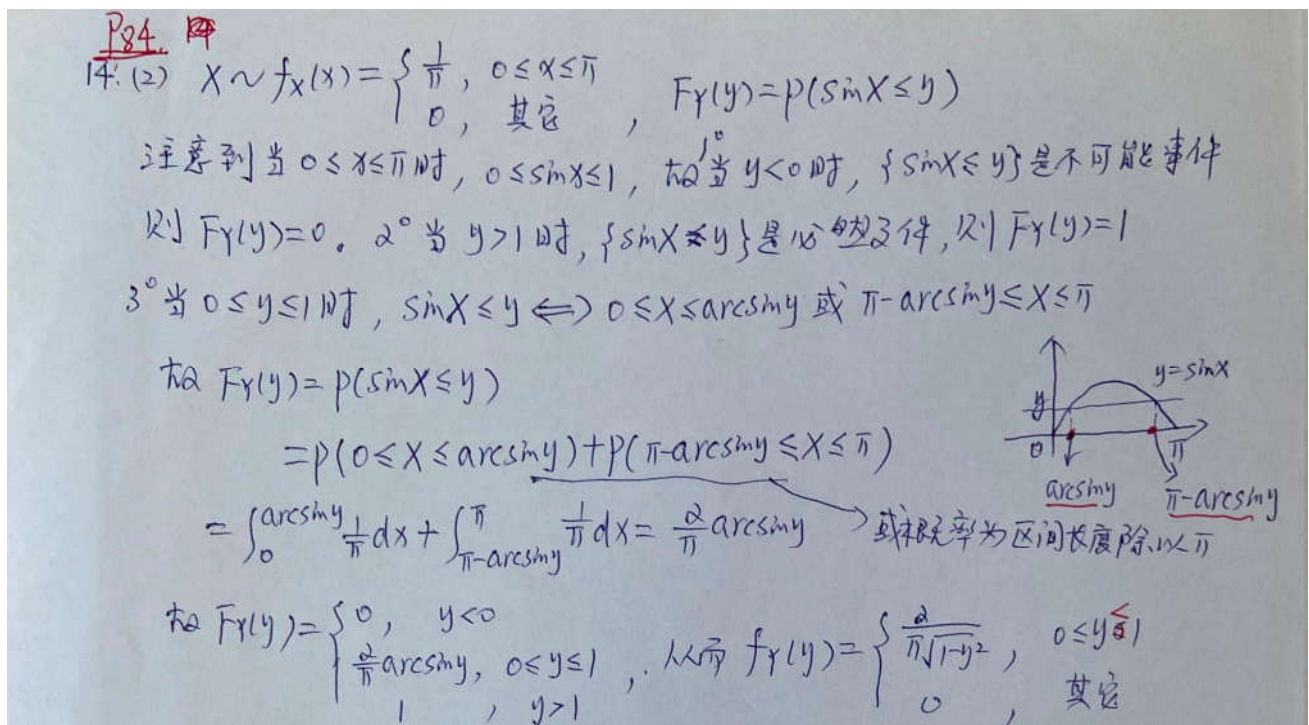 P84.
14.(2) X~fx(x)={1/π, 0≤x≤π
0, 其它 , FY(y)=P(sinX≤y)
注意到当0≤x≤π时, 0≤sinx≤1, 故1°当y<0时, {sinX≤y}是不可能事件
则FY(y)=0。2°当y>1时, {sinX≤y}是必然事件, 则FY(y)=1
3°当0≤y≤1时, sinX≤y⟺0≤X≤arcsiny或π-arcsiny≤X≤π
故FY(y)=P(sinX≤y)
y=sinx
y
0
π
=P(0≤X≤arcsiny)+P(π-arcsiny≤X≤π)
arcsiny π-arcsiny
=∫₀^arcsiny 1/π dx+∫_π-arcsiny^π 1/π dx=2/π arcsiny 或概率为区间长度除以π
故FY(y)={0, y<0
2/π arcsiny, 0≤y≤1
1, y>1
, 从而fY(y)={2/(π√(1-y²)), 0≤y≤1
0, 其它